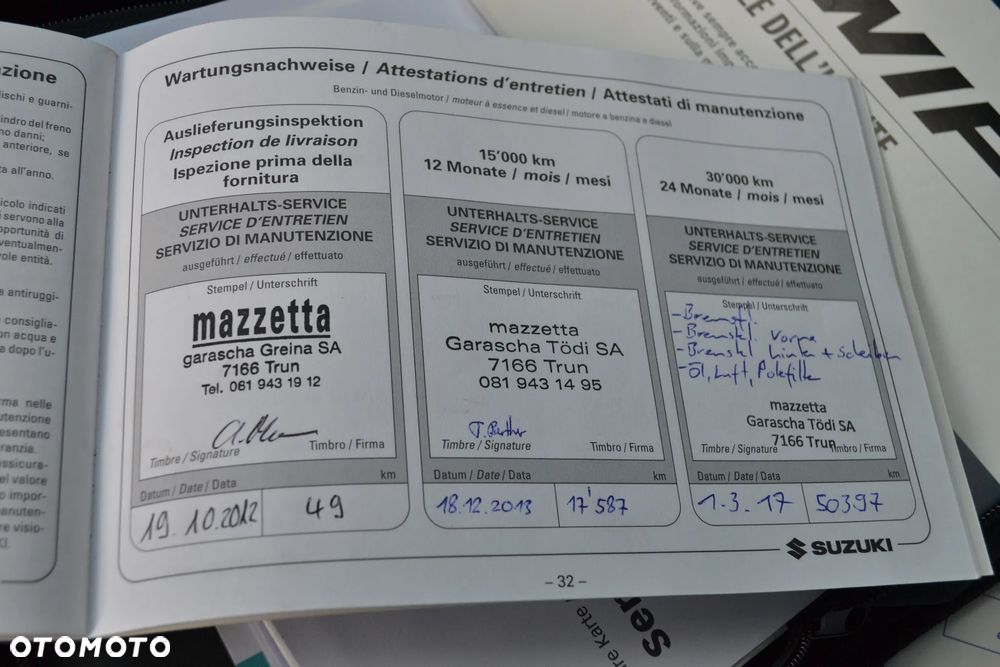 zione
lischi e guarni-
indro del freno
no danni;
anteriore, se
ta all'anno.
icolo indicati
i servono alla
pportunità di
ventualmen-
vole entità.
a antiruggi-
consiglia-
on acqua e
a dopo l'u-
rma nelle
nutenzione
esentano
ranzia.
assicura-
el valore
o impor-
anuten-
re visio-
KI.
Wartungsnachweise / Attestations d'entretien / Attestati di manutenzione
Benzin- und Dieselmotor / moteur à essence et diesel / motore a benzina e diesel
Auslieferungsinspektion
Inspection de livraison
Ispezione prima della
fornitura
UNTERHALTS-SERVICE
SERVICE D'ENTRETIEN
SERVIZIO DI MANUTENZIONE
ausgeführt / effectué / effettuato
Stempel / Unterschrift
mazzetta
garascha Greina SA
7166 Trun
Tel. 081 943 19 12
Timbre / Signature Timbro / Firma
Datum / Date / Data km
19.10.2012 49
15'000 km
12 Monate / mois / mesi
UNTERHALTS-SERVICE
SERVICE D'ENTRETIEN
SERVIZIO DI MANUTENZIONE
ausgeführt / effectué / effettuato
Stempel / Unterschrift
mazzetta
Garascha Tödi SA
7166 Trun
081 943 14 95
Timbre / Signature Timbro / Firma
Datum / Date / Data km
18.12.2013 17'587
30'000 km
24 Monate / mois / mesi
UNTERHALTS-SERVICE
SERVICE D'ENTRETIEN
SERVIZIO DI MANUTENZIONE
ausgeführt / effectué / effettuato
Stempel / Unterschrift
- Bremsfl.
- Bremskl. vorne
- Bremskl hinten + Scheiben
- Öl, Luft, Pollenfilter
mazzetta
Garascha Tödi SA
7166 Trun
Timbre / Signature Timbro / Firma
Datum / Date / Data km
1.3.17 50397
SUZUKI
– 32 –
OTOMOTO